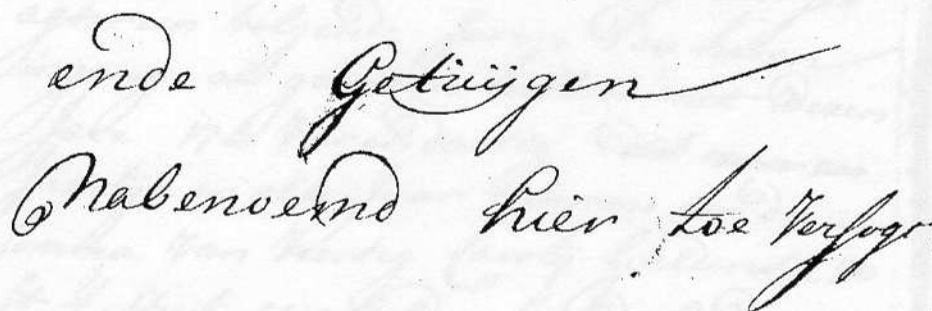 ende Getuijgen
Nabenoemd hier toe Versogt